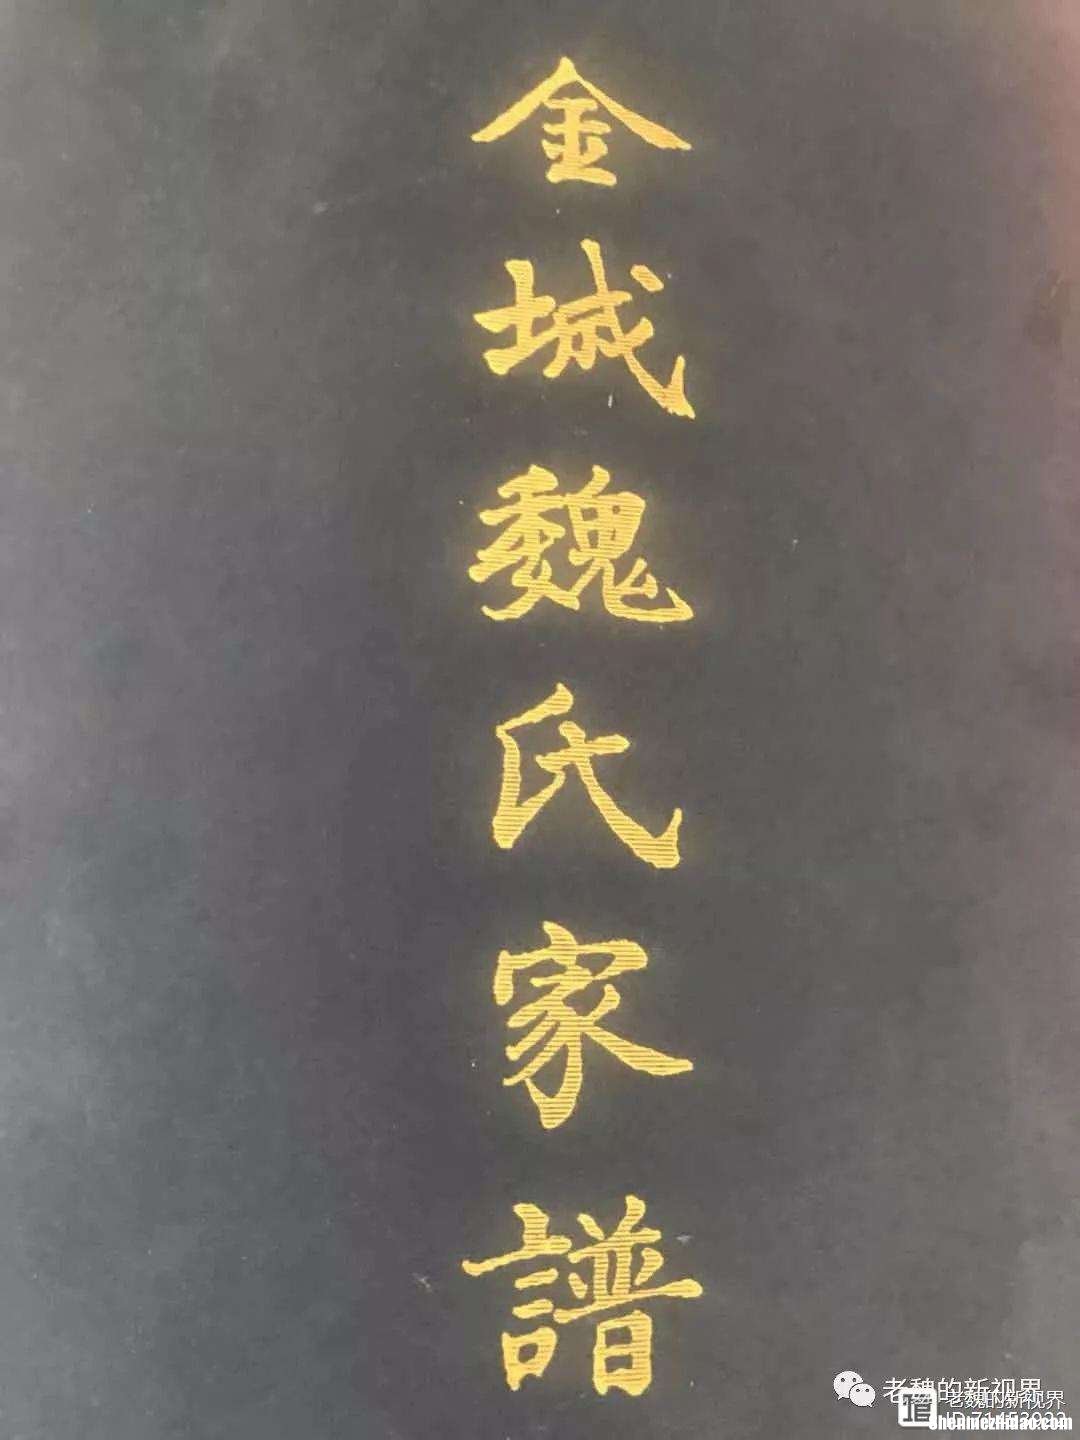 金城魏氏家譜
老魏的新视界
老魏的新视界
shenmezhidao.com